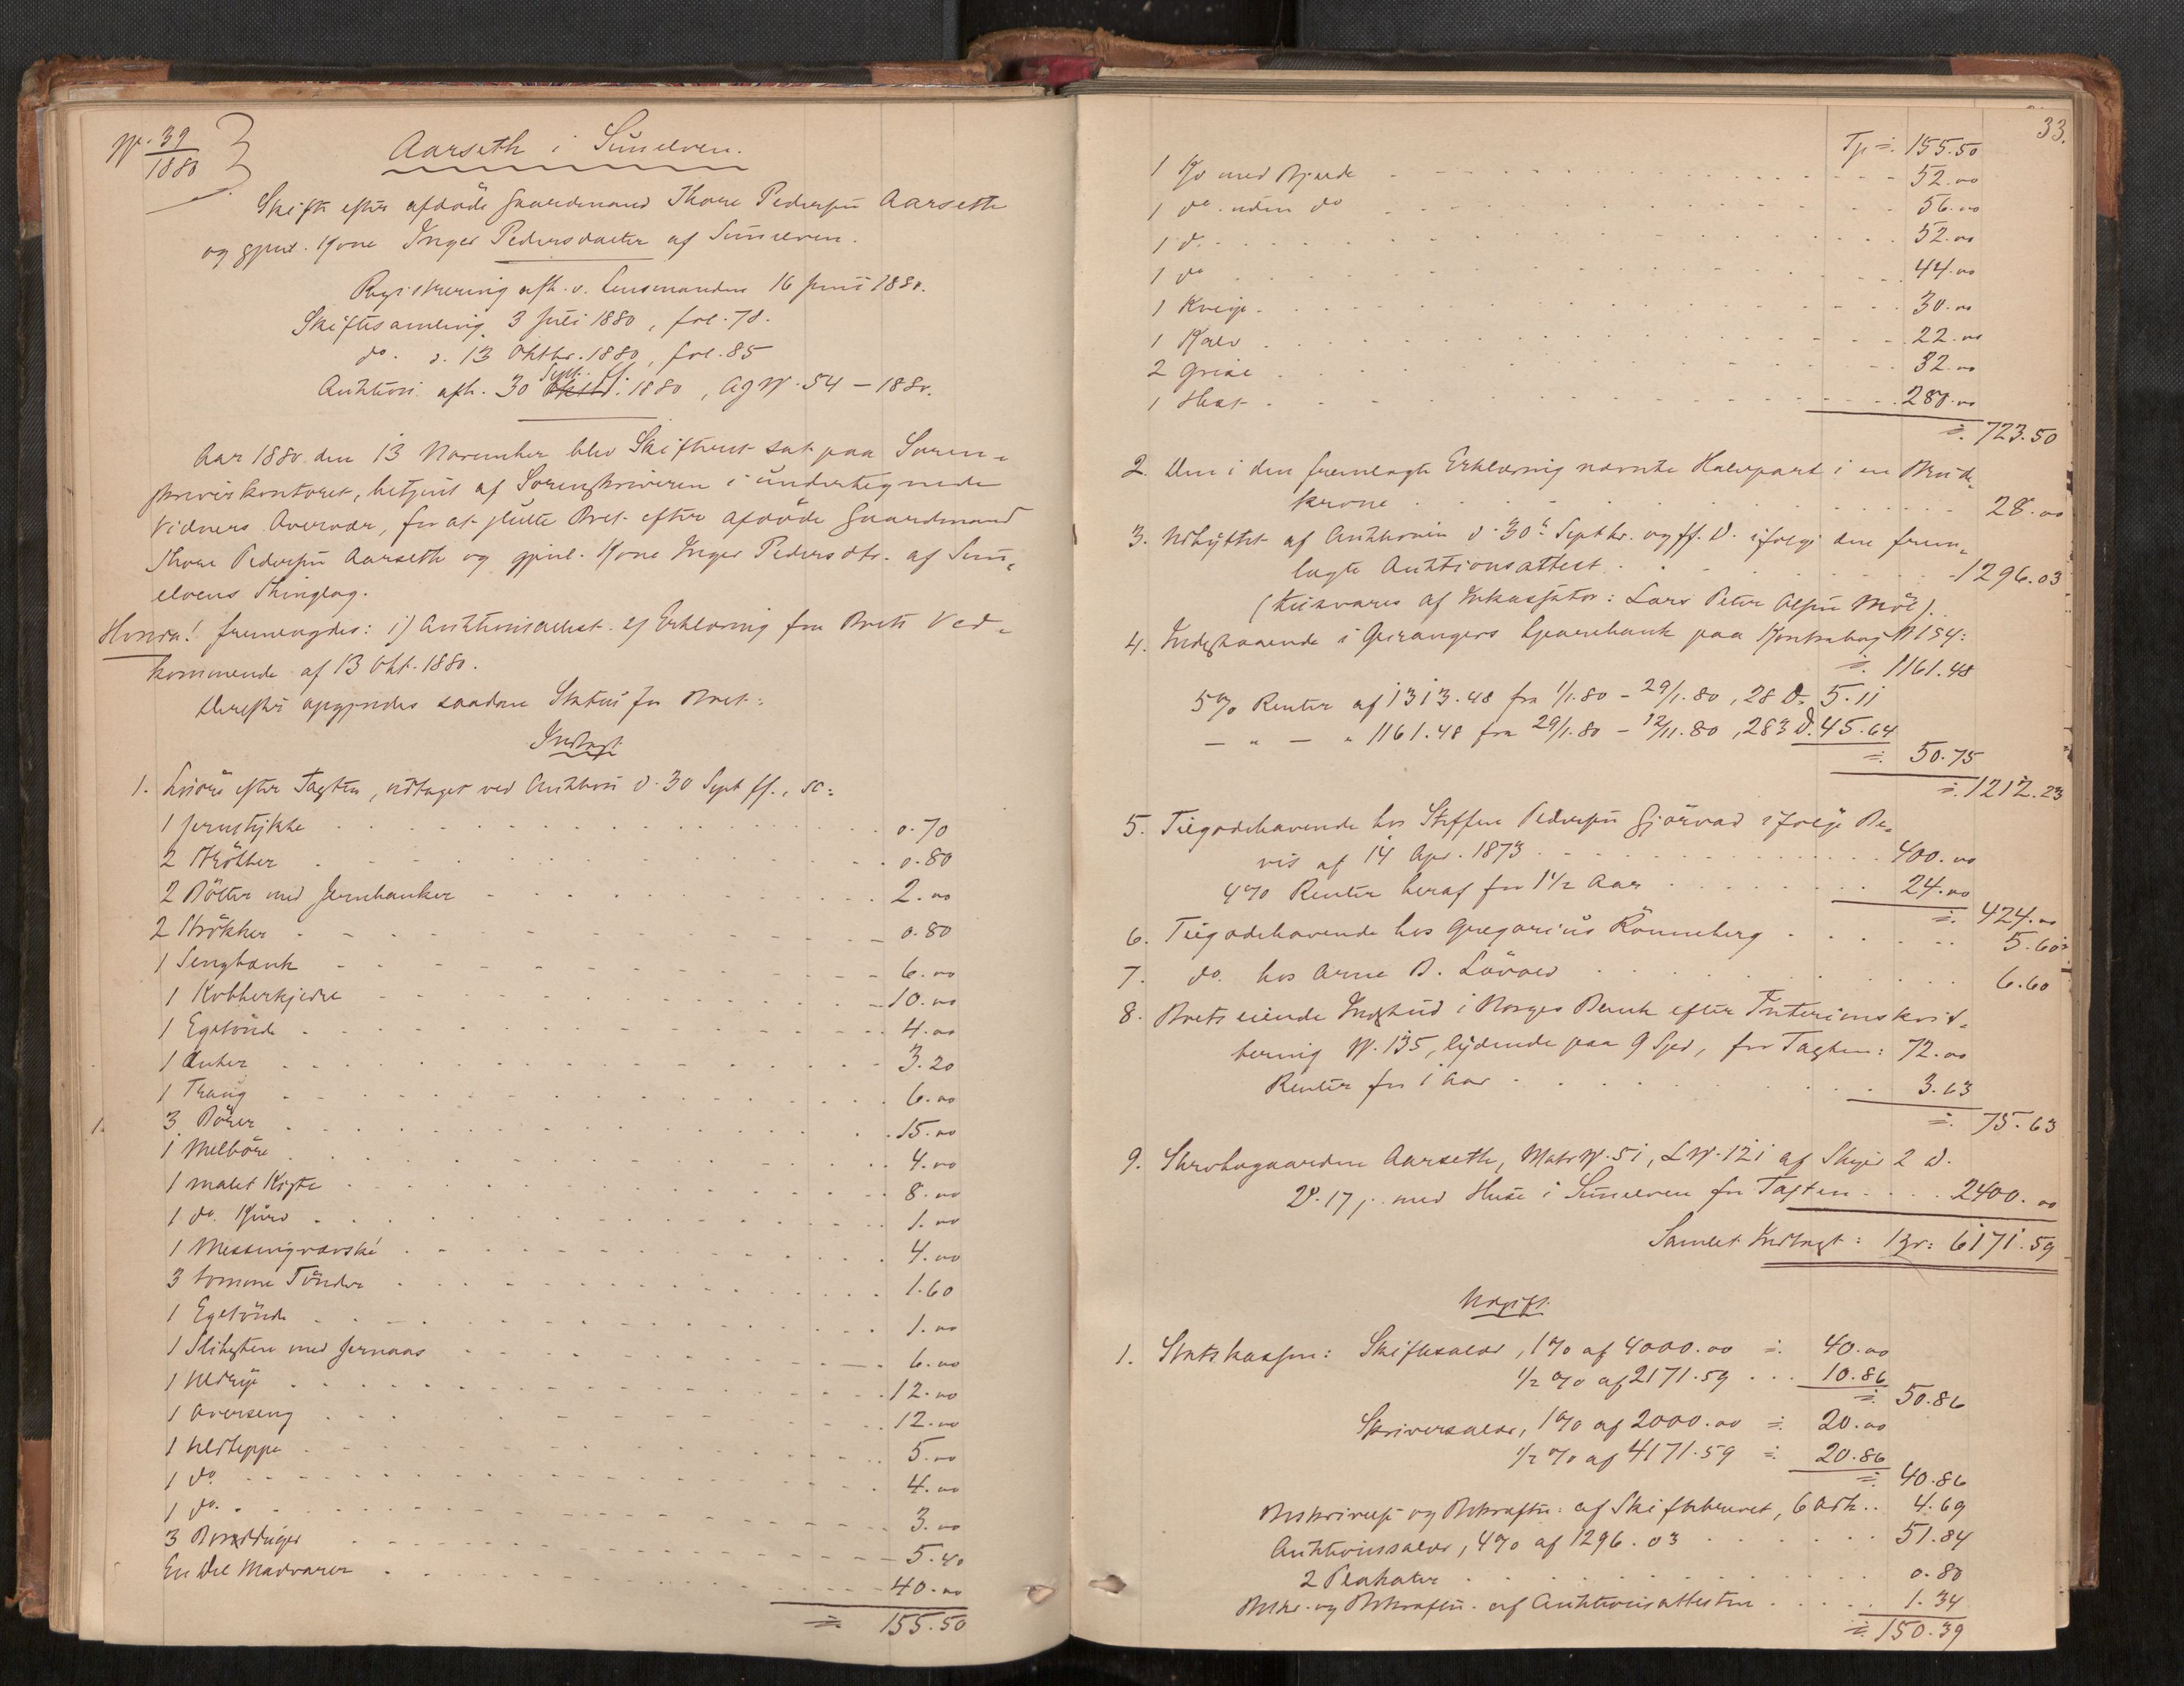 No. 39
1880
Aarseth i Sunelven.
Skifte efter afdöde Gaardmand Thore Pedersen Aarseth
og gjenl. Kone Inger Pedersdatter af Sunelven.
Registrering afh. v. Lensmanden 16 Juni 1880.
Skiftesamling 3 Juli 1880, fol. 78.
do. d. 13 Oktbr. 1880, fol. 85
Auktion afh. 30 Sept. ff. 1880, Ag No. 54 – 1880.
Aar 1880 den 13 November blev Skifteret sat paa Soren-
skriverkontoret, betjent af Sorenskriveren i undertegnede
Vidners Overvær, for at slutte Boet efter afdöde Gaardmand
Thore Pedersen Aarseth og gjenl. Kone Inger Pedersdtr. af Sun-
elvens Thinglag.
Hvorda! fremlagdes: 1) Auktionsattest. 2) Erklæring fra Boets Ved-
kommende af 13 Okt. 1880.
Derefter opgjordes saadan Status for Boet:
Indtægt
1. Lösöre efter Taxten, udtaget ved Auktion d. 30 Sept ff., sc:
1 Jernstykke 0.70
2 Strökker 0.80
2 Bötter med Jernhanker 2.00
2 Strökker 0.80
1 Sengbænk 6.00
1 Kobberkjedel 10.00
1 Egetönde 4.00
1 Anker 3.20
1 Traug 6.00
3 Börer 15.00
1 Melböre 4.00
1 malet Kiste 8.00
1 do. Kurv 1.00
1 Messing 4.00
3 tomme Tönder 1.60
1 Egetönde 1.00
1 Slibesten med Jernaas 6.00
1 Uldrye 12.00
1 Overseng 12.00
1 Uldteppe 5.00
1 do. 4.00
1 do. 3.00
3 5.40
En Del Madvarer 40.00
= 155.50
33.
Tp =. 155.50
1 Ko med Bjelde 52.00
1 do. uden do 56.00
1 d. 52.00
1 do 44.00
1 Kvige 30.00
1 Kalv 22.00
2 Grise 32.00
1 Hest 280.00
=. 723.50
2. Den i den fremlagte Erklæring nævnte Halvpart i en Brude-
krone 28.00
3. Udbyttet af Auktionen d. 30te Septbr. og ff. D. ifölge den frem-
lagte Auktionsattest 1296.03
(tilsvares af Inkassator: Lars Peter Olsen Möl).
4. Indestaaende i Geirangers Sparebank paa Kontrabog No 154:
=. 1161.48
5% Renter af 1313.48 fra 1/1.80 – 29/1.80, 28 D. 5.11
– " – " 1161.48 fra 29/1.80 – 12/11.80, 283 D. 45.64
=. 50.75
=. 1212.23
5. Tilgodehavende hos Steffen Pedersen Gjörvad ifölge Be-
vis af 14 Apr. 1873 400.00
4% Renter heraf for 1 1/2 Aar 24.00
=. 424.00
6. Tilgodehavende hos Gregorius Rönneberg 5.60
7. do. hos Arne B. Lövold 6.60
8. Boets eiende Indskud i Norges Bank efter Interimskvit-
tering No. 135, lydende paa 9 Spd, for Taxten: 72.00
Renter for 1 Aar 3.63
=. 75.63
9. Skrabgaarden Aarseth, Matr No. 51, L No. 121 af Skyld 2 D.
2 s. 17, med Huse i Sunelven for Taxten 2400.00
Samlet Indtægt: Kr: 6171.59
Udgift.
1. Statskassen: Skiftesalær, 1% af 4000.00 =. 40.00
1/2 % af 2171.59 ... 10.86
=. 50.86
Skriversalær, 1% af 2000.00 =. 20.00
1/2 % af 4171.59 =. 20.86
=. 40.86
Beskrivelse og Bekræften. af Skiftebrevet, 6 Ark. 4.69
Auktionssalær, 4% af 1296.03 51.84
2 Plakater 0.80
Beskr. og Bekræften. af Auktionsattesten 1.34
=. 150.39